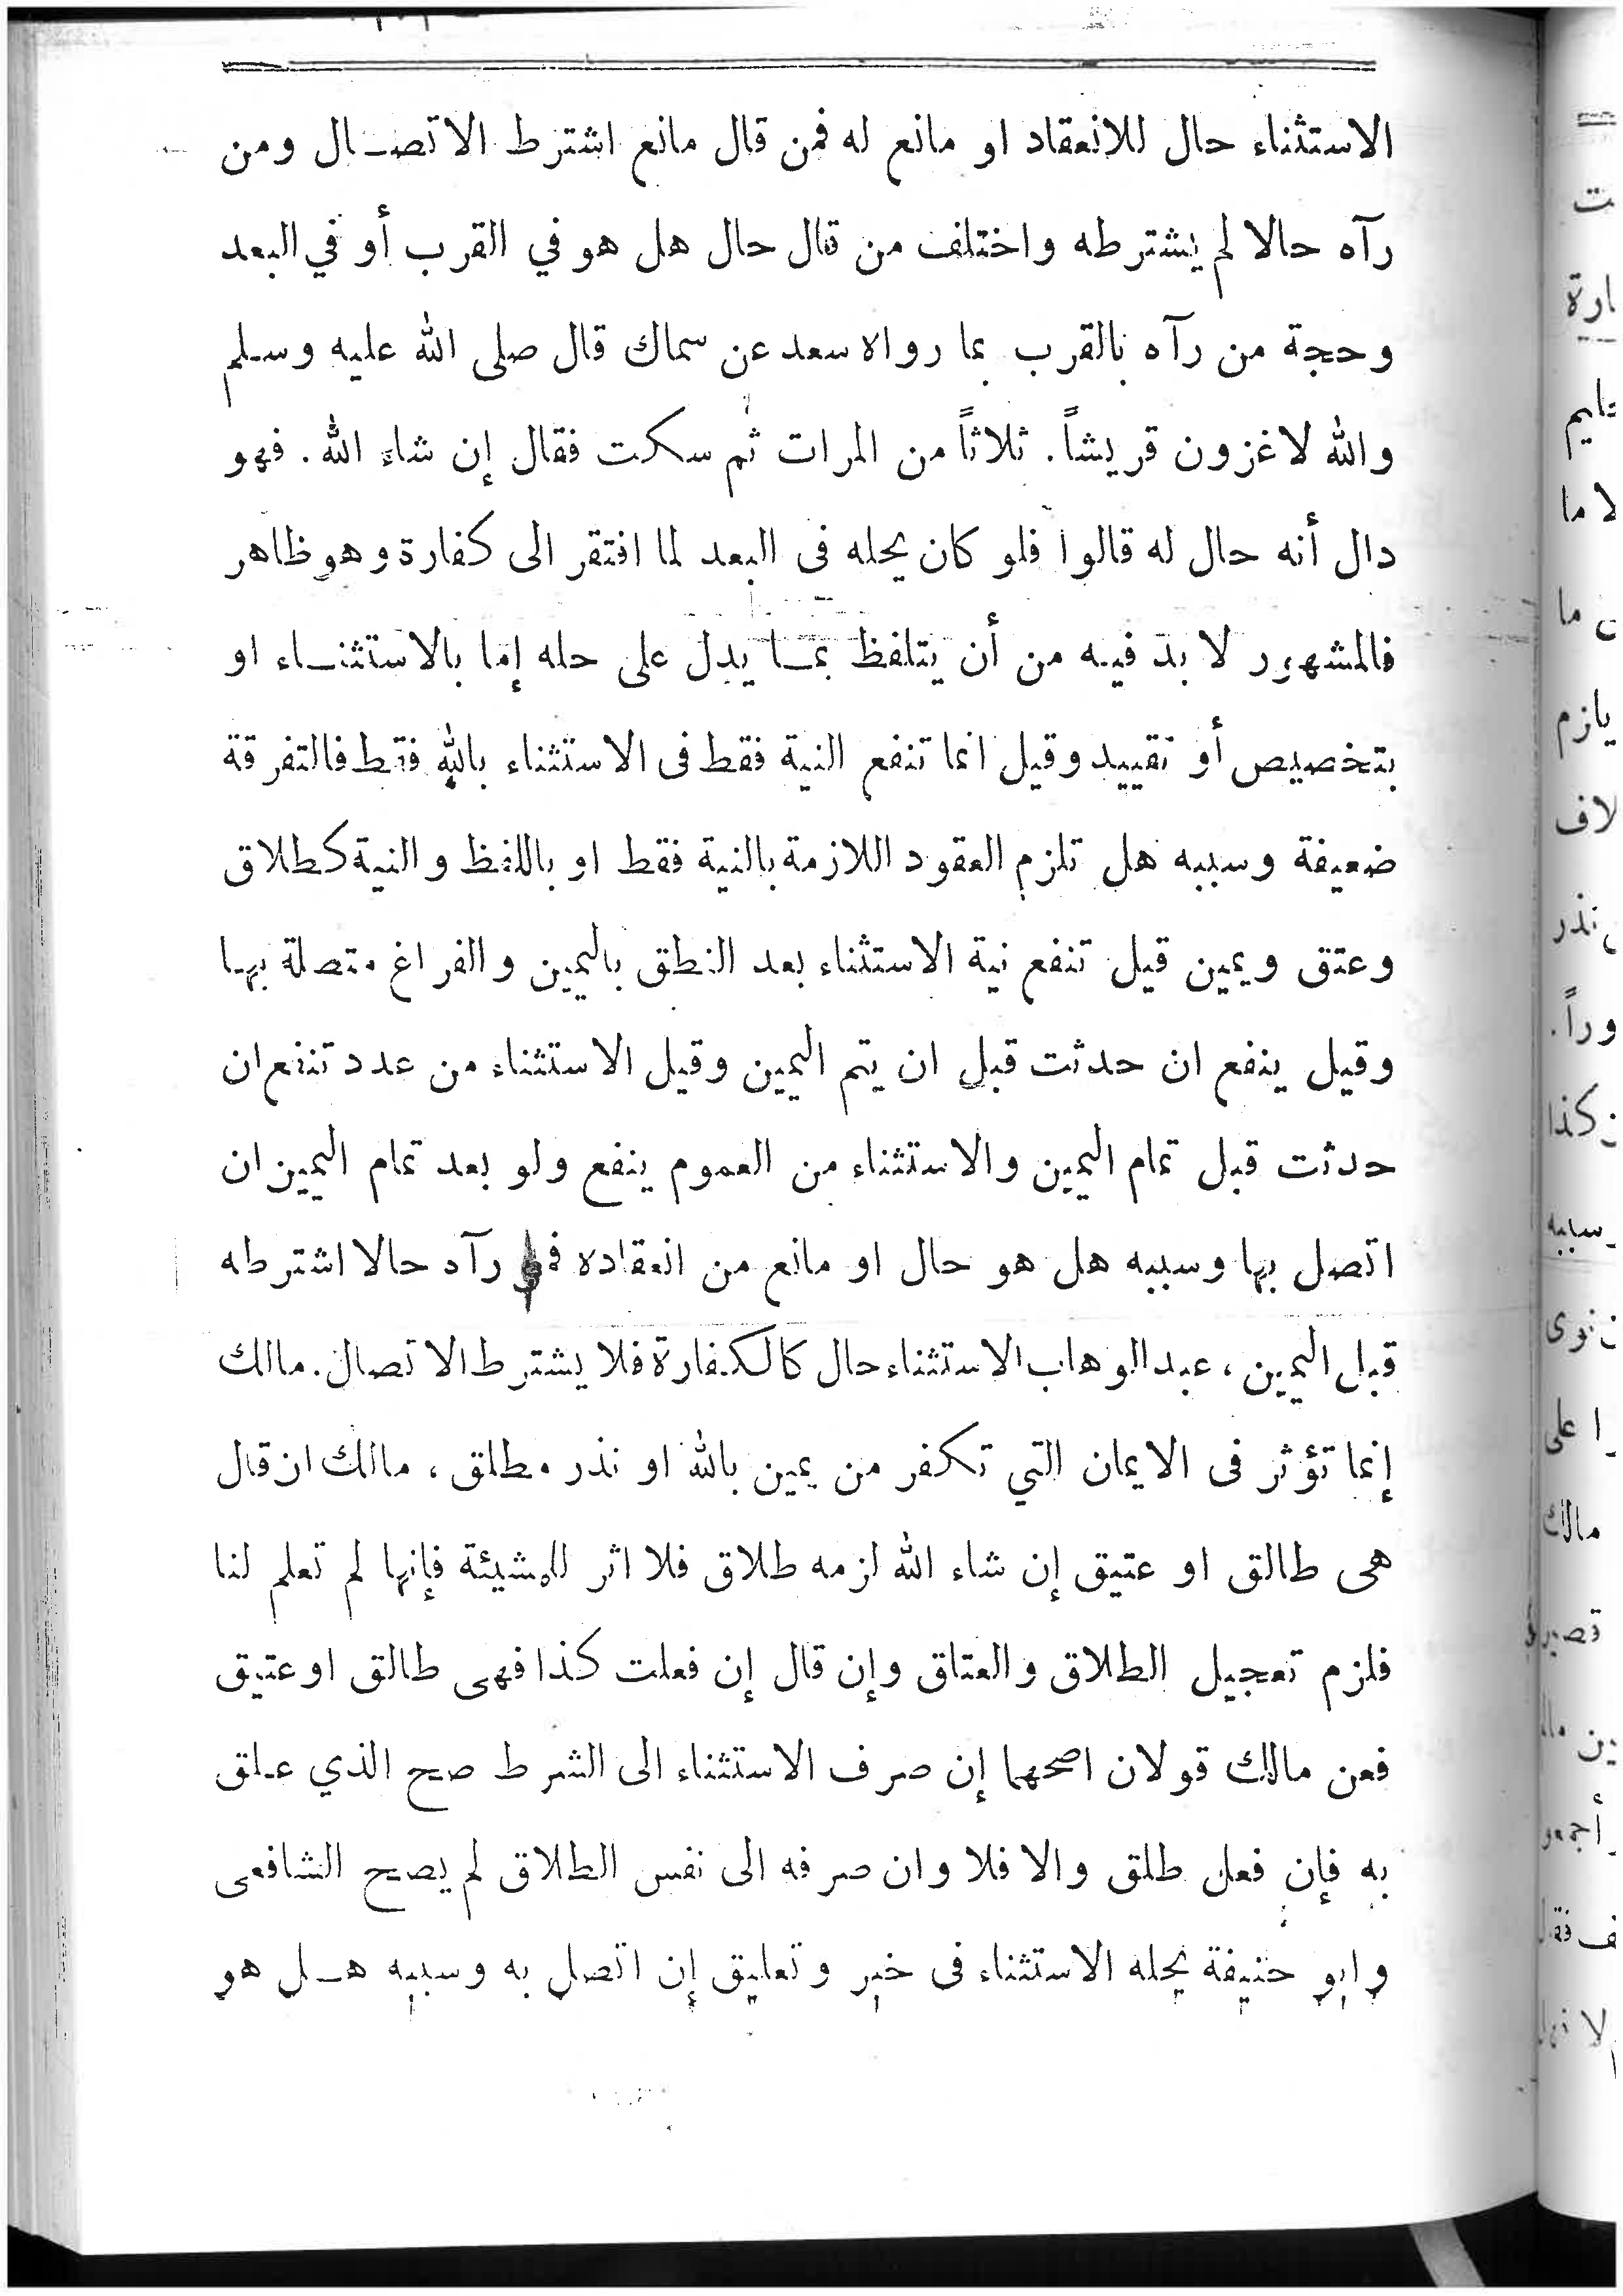 الاستثناء حال للانعقاد او مانع له فمن قال مانع اشترط الاتصال ومن
رآه حالا لم يشترطه واختلف من قال حال هل هو في القرب أو في البعد
وحجة من رآه بالقرب بما رواه سعد عن سماك قال صلى الله عليه وسلم
والله لاغزون قريشاً . ثلاثاً من المرات ثم سكت فقال إن شاء الله . فهو
دال أنه حال له قالوا فلو كان يحله فى البعد لما افتقر الى كفارة وهو ظاهر
فالمشهور لا بد فيه من أن يتلفظ بما يدل على حله إما بالاستثناء او
بتخصيص أو تقييد وقيل انما تنفع النية فقط فى الاستثناء بالله فقط فالتفرقة
ضعيفة وسببه هل تلزم العقود اللازمة بالنية فقط او باللفظ والنية كطلاق
وعتق ويمين قيل تنفع نية الاستثناء بعد النطق باليمين والفراغ متصلة بها
وقيل ينفع ان حدثت قبل ان يتم اليمين وقيل الاستثناء من عدد تنفع ان
حدثت قبل تمام اليمين والاستثناء من العموم ينفع ولو بعد تمام اليمين ان
اتصل بها وسببه هل هو حال او مانع من انعقاده رآه حالا اشترطه
قبل اليمين ، عبد الوهاب الاستثناء حال كالكفارة فلا يشترط الاتصال . مالك
إنما تؤثر فى الايمان التي تكفر من يمين بالله او نذر مطلق ، مالك ان قال
هى طالق او عتيق إن شاء الله لزمه طلاق فلا اثر للمشيئة فإنها لم تعلم لنا
فلزم تعجيل الطلاق والعتاق وإن قال إن فعلت كذا فهى طالق او عتيق
فعن مالك قولان اصحهما إن صرف الاستثناء الى الشرط صح الذي علق
به فإن فعل طلق والا فلا وان صرفه الى نفس الطلاق لم يصح الشافعى
وابو حنيفة يحله الاستثناء فى خبر وتعليق إن اتصل به وسببه هل هو